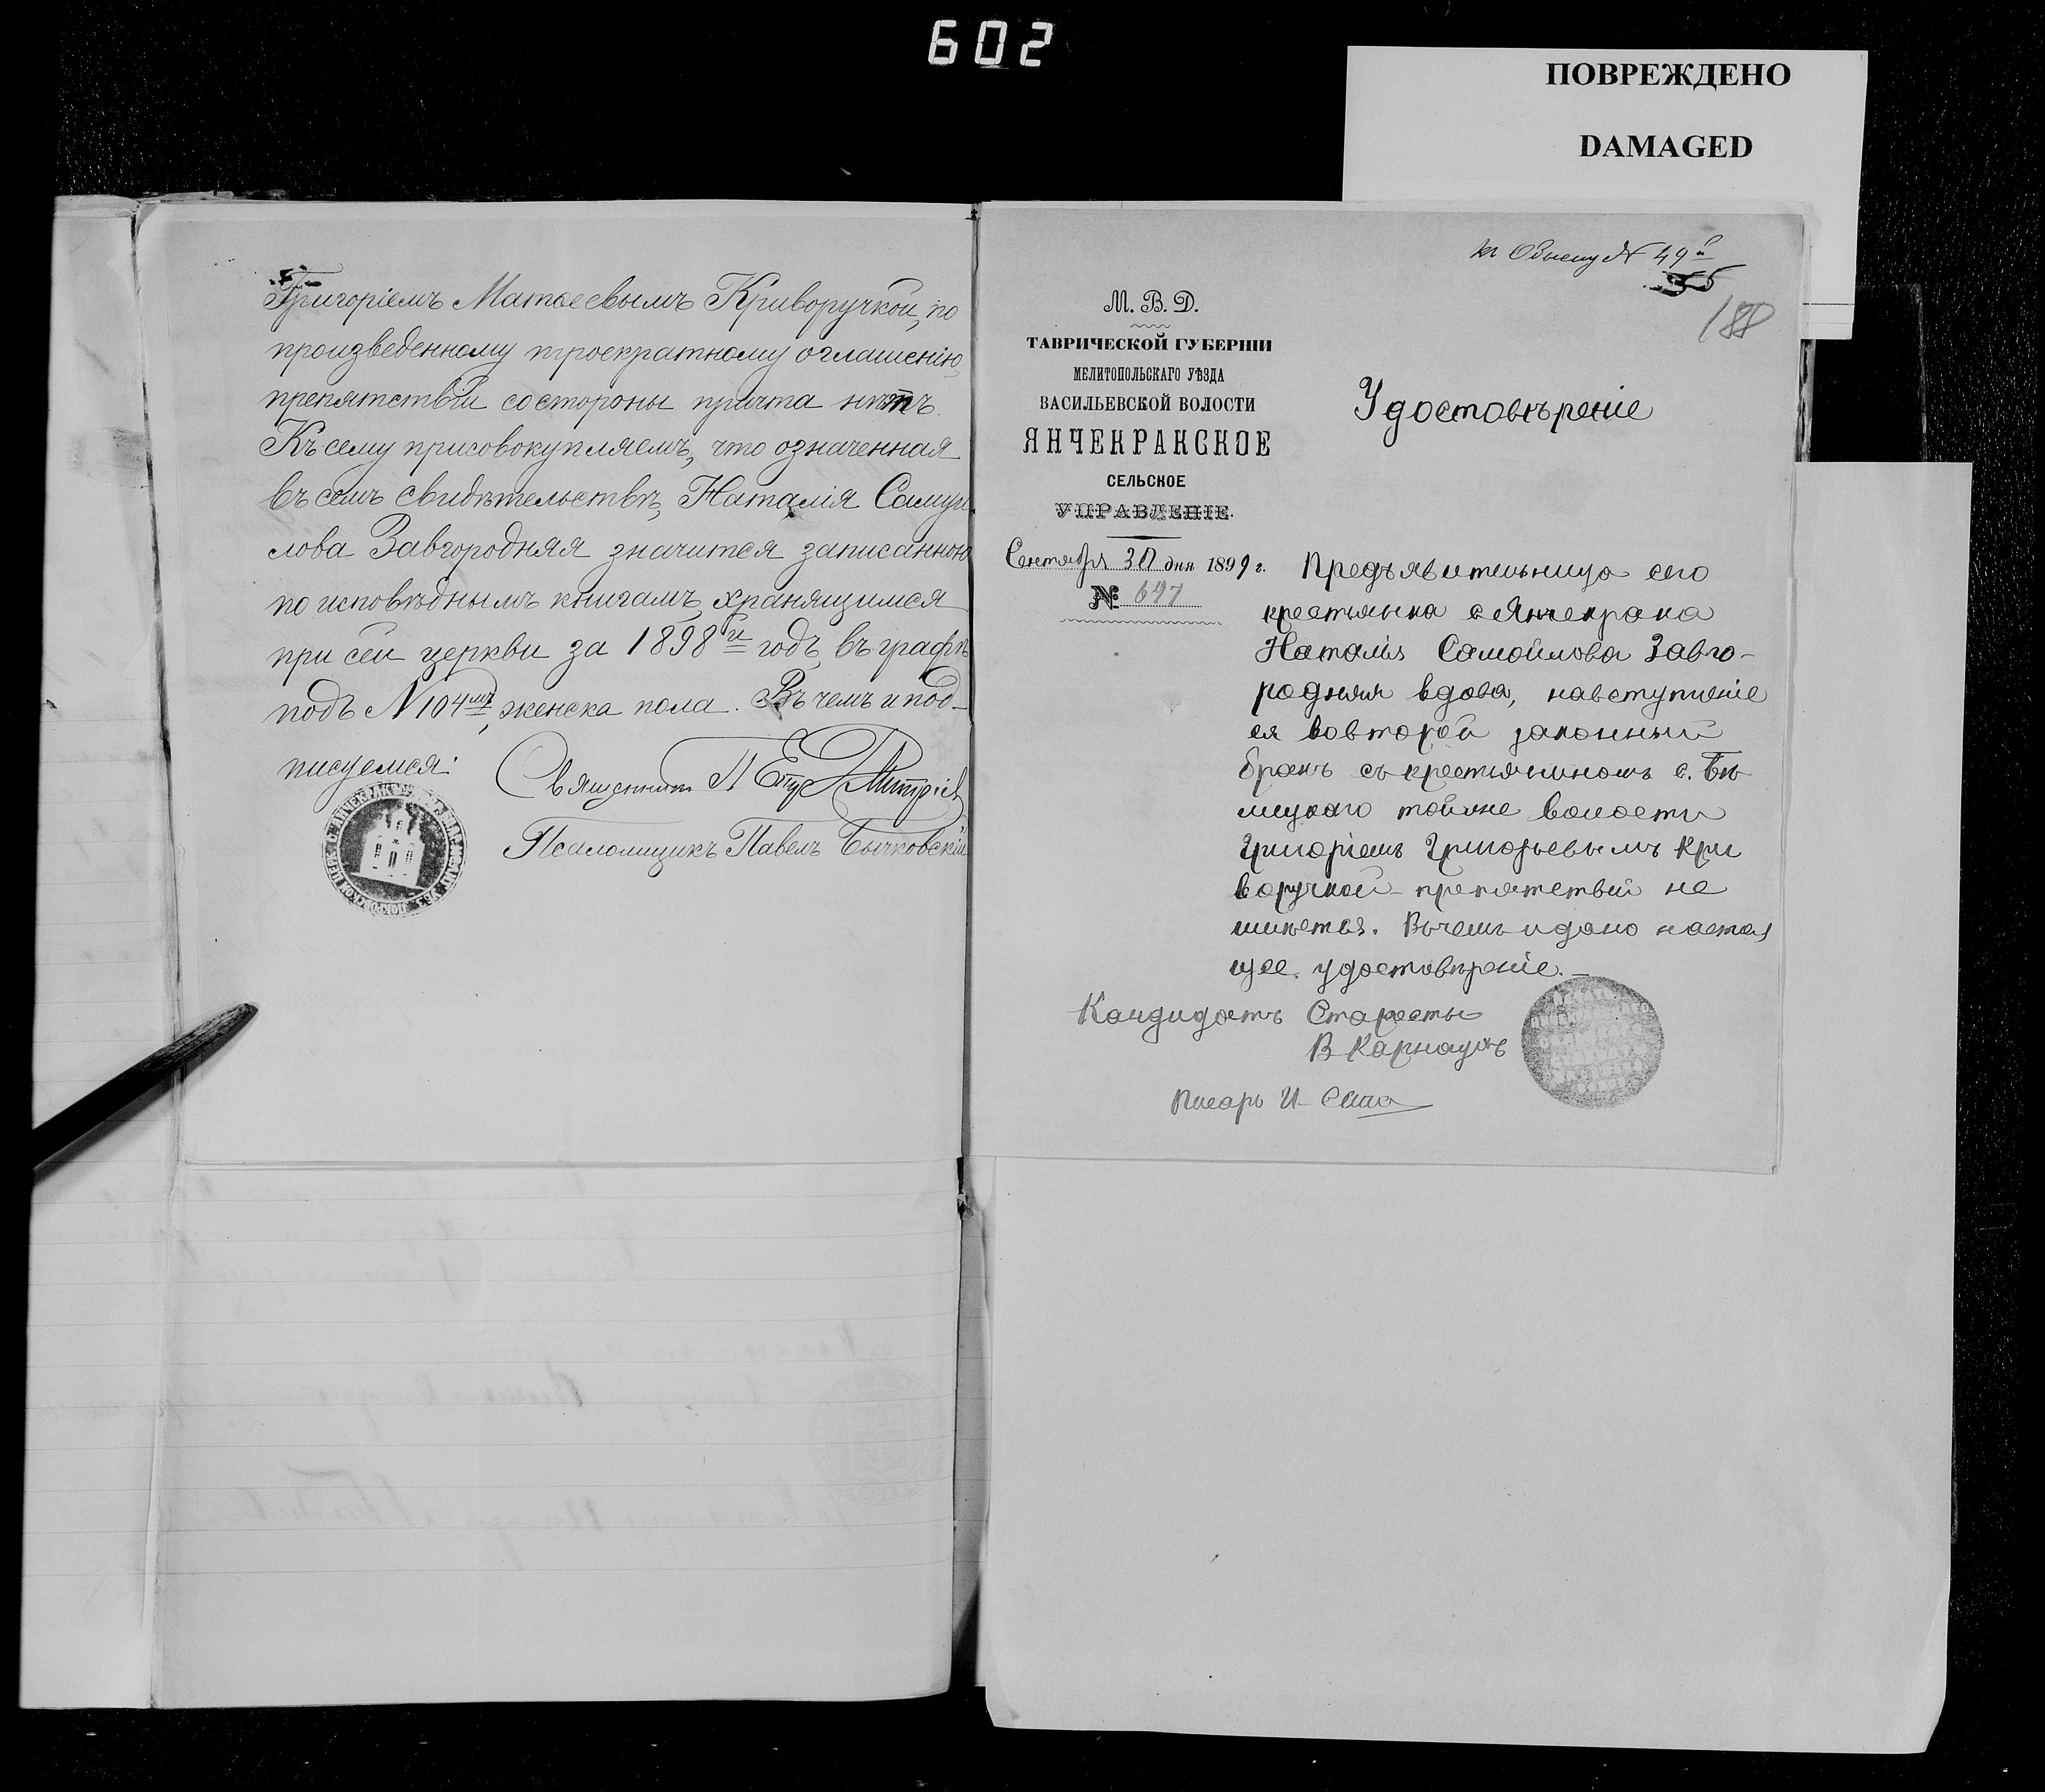 602
ПОВРЕЖДЕНО
DAMAGED
Григоріемъ Матвеевымъ Криворучкой, по
произведенному троекратному оглашенію,
препятствій со стороны причта нѣтъ.
Къ сему присовокупляемъ, что означенная
въ семъ свидѣтельствѣ, Наталія Самуи
лова Завгородняя значится записанною
по исповѣднымъ книгамъ, хранящимся
при сей церкви за 1898й годъ, въ графѣ
подъ N 104мъ, женска пола. Въ чемъ и под-
писуемся:
Священникъ П
Псаломщикъ Павелъ Бычковскій
къ Обыску N 49й
55
188
М. В. Д.
ТАВРИЧЕСКОЙ ГУБЕРНІИ
МЕЛИТОПОЛЬСКАГО УѢЗДА
ВАСИЛЬЕВСКОЙ ВОЛОСТИ
ЯНЧЕКРАКСКОЕ
СЕЛЬСКОЕ
УПРАВЛЕНІЕ.
Сентября 30 дня 1899 г.
№ 697
Удостовѣреніе
Предъявительница сего
крестьянка с Янчекрака
Наталія Самойлова Завго-
родняя вдова, навступленіе
ея вовторой законный
бракъ съ крестьяниномъ с. Бѣ
лицкаго тойже волости
Григоріемъ Григорьевымъ Кри
воручкой препятствій не
имѣется. Вчемъ и дано настоя
щее удостовѣреніе.-
Кандидатъ Старосты
В Карнаухъ
Писарь И.